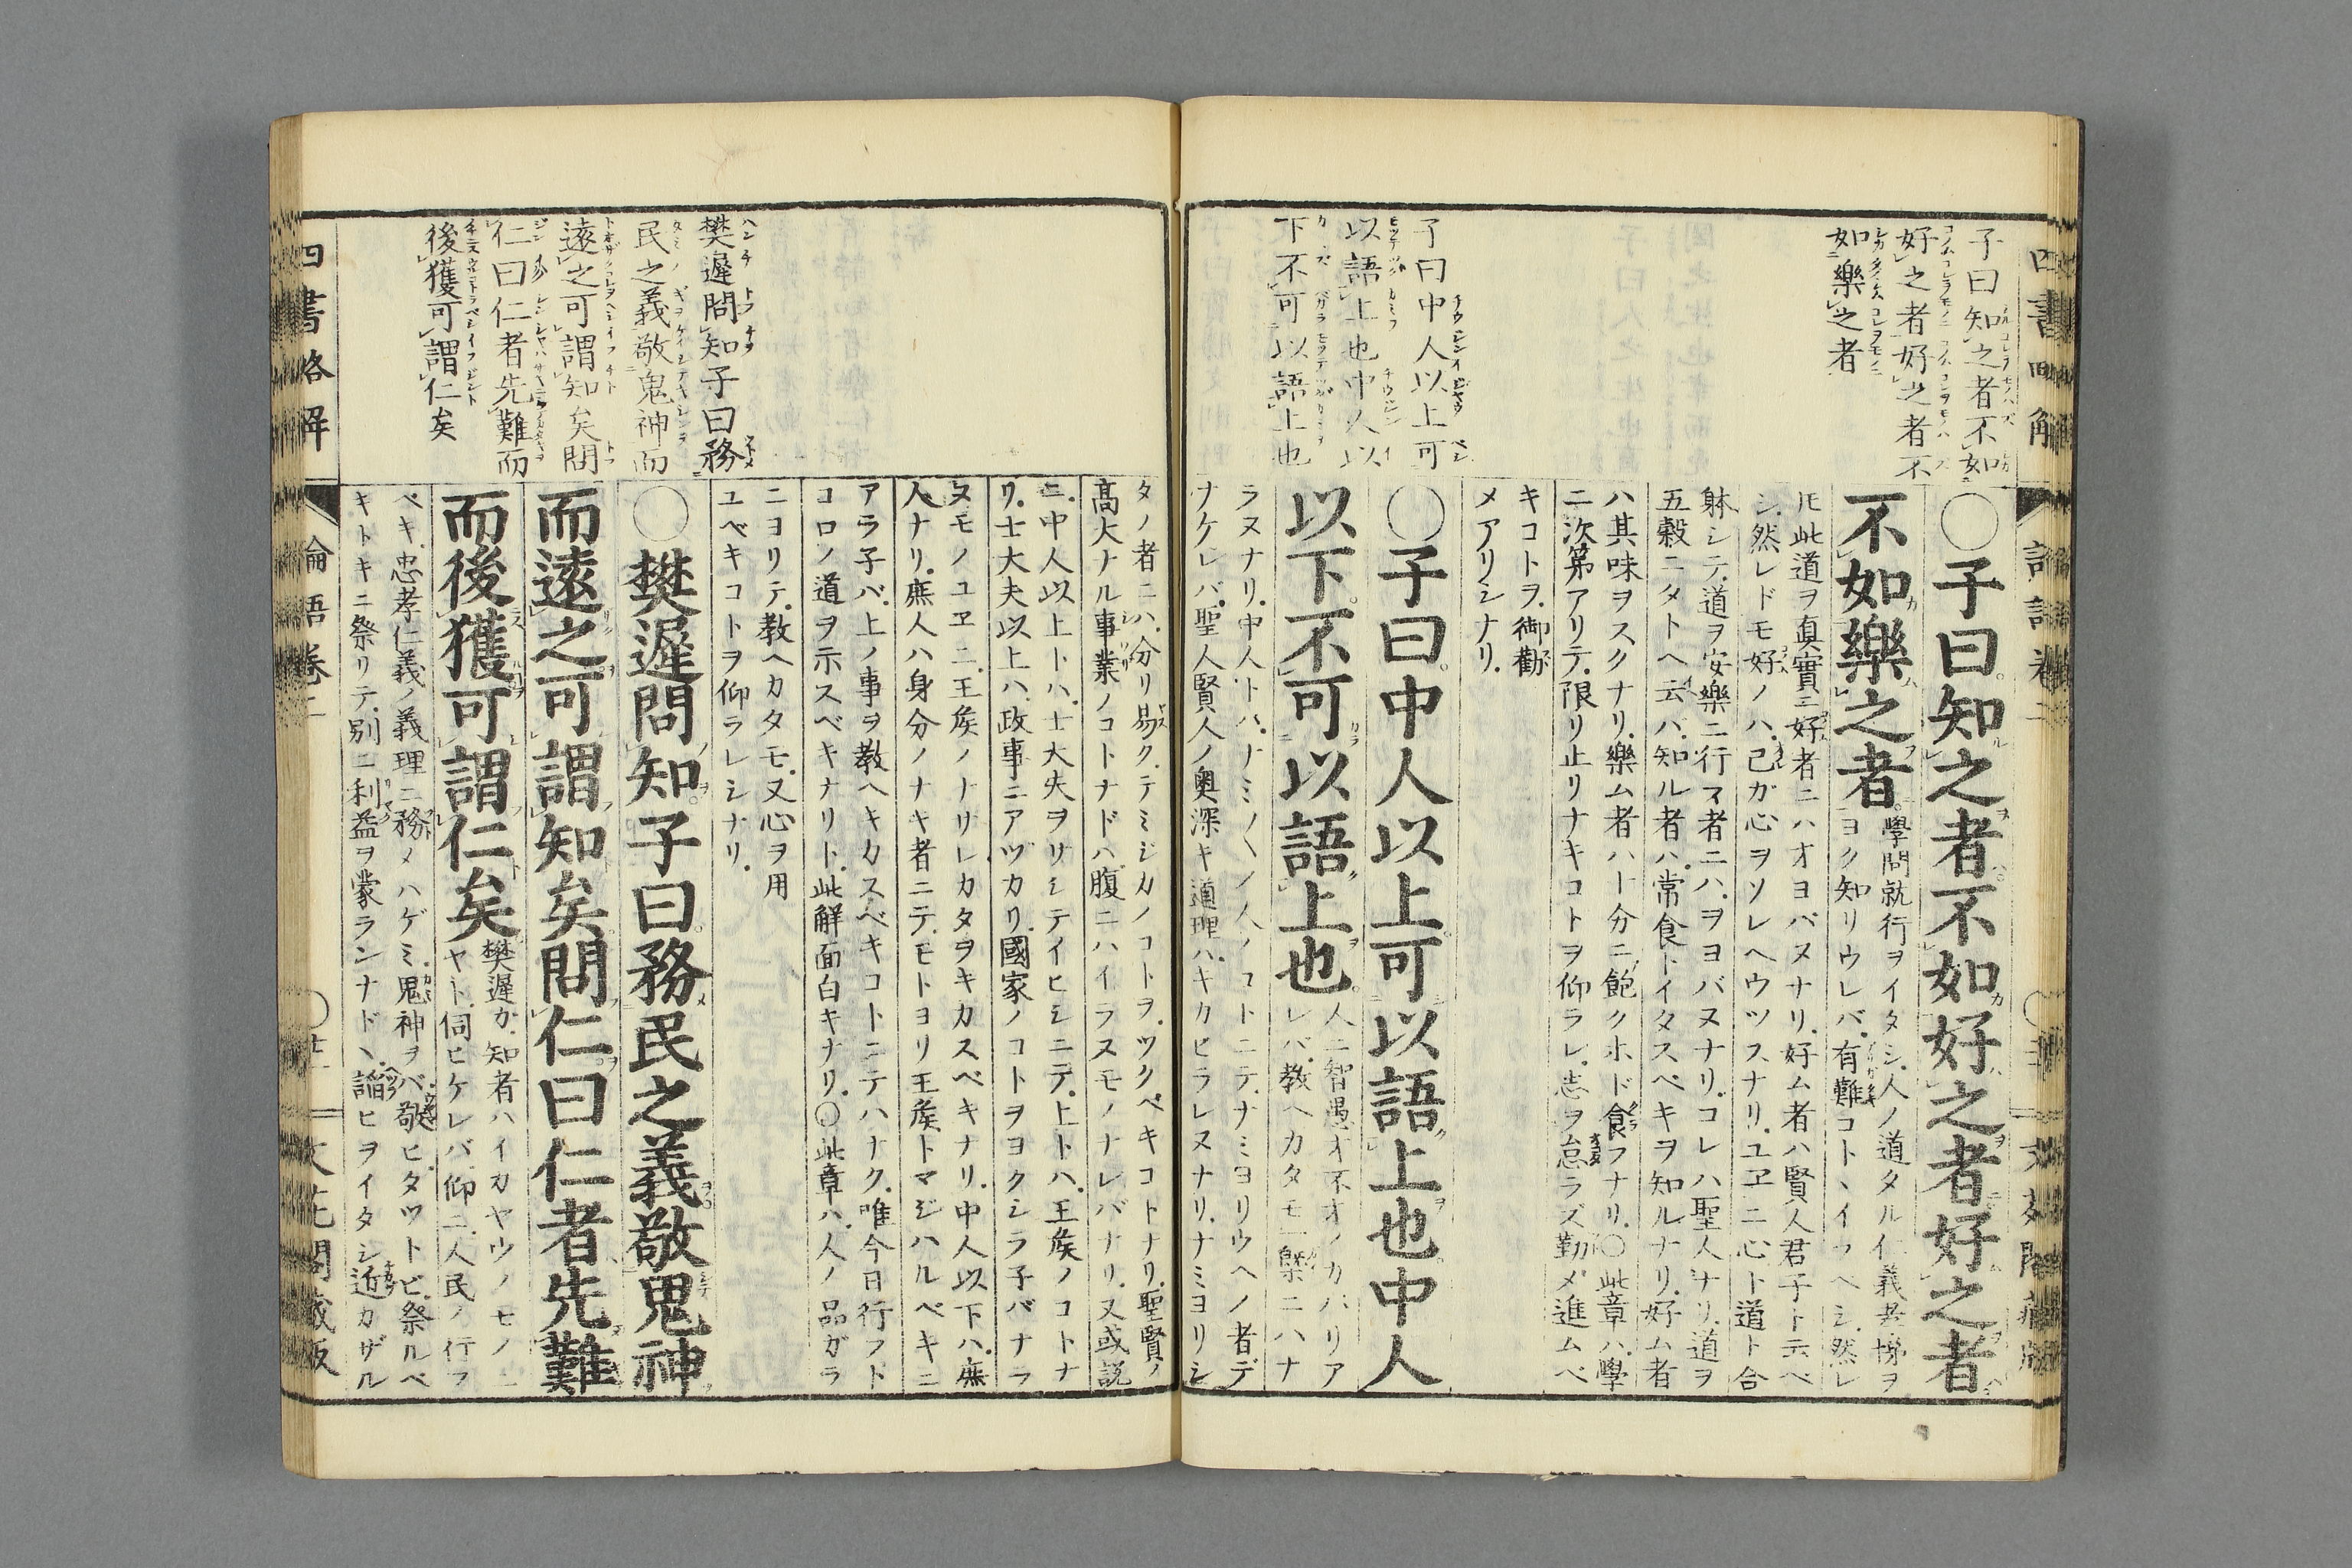 四書略解
子曰知之者不如
好之者好之者不
如樂之者
〇子曰知之者不如好之者好之者
不如樂之者
學問就行ヲイタシ人ノ道タル仁義孝悌ヲ
ヨク知リウレバ有難コトヽイフヘシ然レ
𪜈此道ヲ真實ニ好者ニハオヨバヌナリ好ム者ハ賢人君子ト云ベ
シ然レドモ好ノハ己ガ心ヲソレヘウツスナリユヱニ心ト道ト合
躰シテ道ヲ安樂ニ行フ者ニハヲヨバヌナリコレハ聖人ナリ道ヲ
五穀ニタトヘ云ハ知ル者ハ常食トイタスベキヲ知ルナリ好ム者
ハ其味ヲスクナリ樂ム者ハ十分ニ飽クホド食フナリ〇此章ハ學
ニ次第アリテ限リ止リナキコトヲ仰ラレ志ヲ怠ラズ勤メ進ムベ
キコトヲ御勸
メアリシナリ
子曰中人以上可
以語上也中人以
下不可以語上也
〇子曰中人以上可以語上也中人
以下不可以語上也
人ニ智愚才不才ノカハリア
レバ教ヘカタモ一槩ニハナ
ラヌナリ中人トハナミ〳〵ノ人ノコトニテナミヨリウヘノ者デ
ナケレバ聖人賢人ノ奥深キ道理ハキカセラレヌナリナミヨリシ
タノ者ニハ分リ易クテミジカノコトヲツクベキコトナリ聖賢ノ
高大ナル事業ノコトナドハ腹ニハイラヌモノナレバナリ又或説
ニ中人以上トハ士大夫ヲサシテイヒシニテ上トハ王矦ノコトナ
リ士大夫以上ハ政事ニアヅカリ國家ノコトヲヨクシラ子バナラ
ヌモノユヱニ王矦ノナリカタヲキカスベキナリ中人以下ハ庶
人ナリ庶人ハ身分ノナキ者ニテモトヨリ王矦トマジハルベキニ
アラ子バ上ノ事ヲ教ヘキカスベキコトニテハナク唯今日行フト
コロノ道ヲ示スベキナリト此解面白キナリ〇此章ハ人ノ品ガラ
ニヨリテ教ヘカタモ又心ヲ用
ユベキコトヲ仰ラレシナリ
樊遲問知子曰務
民之義敬鬼神而
遠之可謂知矣問
仁曰仁者先難而
後獲可謂仁矣
〇樊遲問知子曰務民之義敬鬼神
而遠之可謂知矣問仁曰仁者先難
而後獲可謂仁矣
樊遲ガ知者ハイカヤウノモノニ
ヤト伺ヒケレバ仰ニ人民ノ行フ
ベキ忠孝仁義ノ義理ニ務メハゲミ鬼神ヲバ敬ヒタツトビ祭ルベ
キトキニ祭リテ別ニ利益ヲ蒙ランナドヽ諂ヒヲイタシ近カザル
四書略解
論語卷二